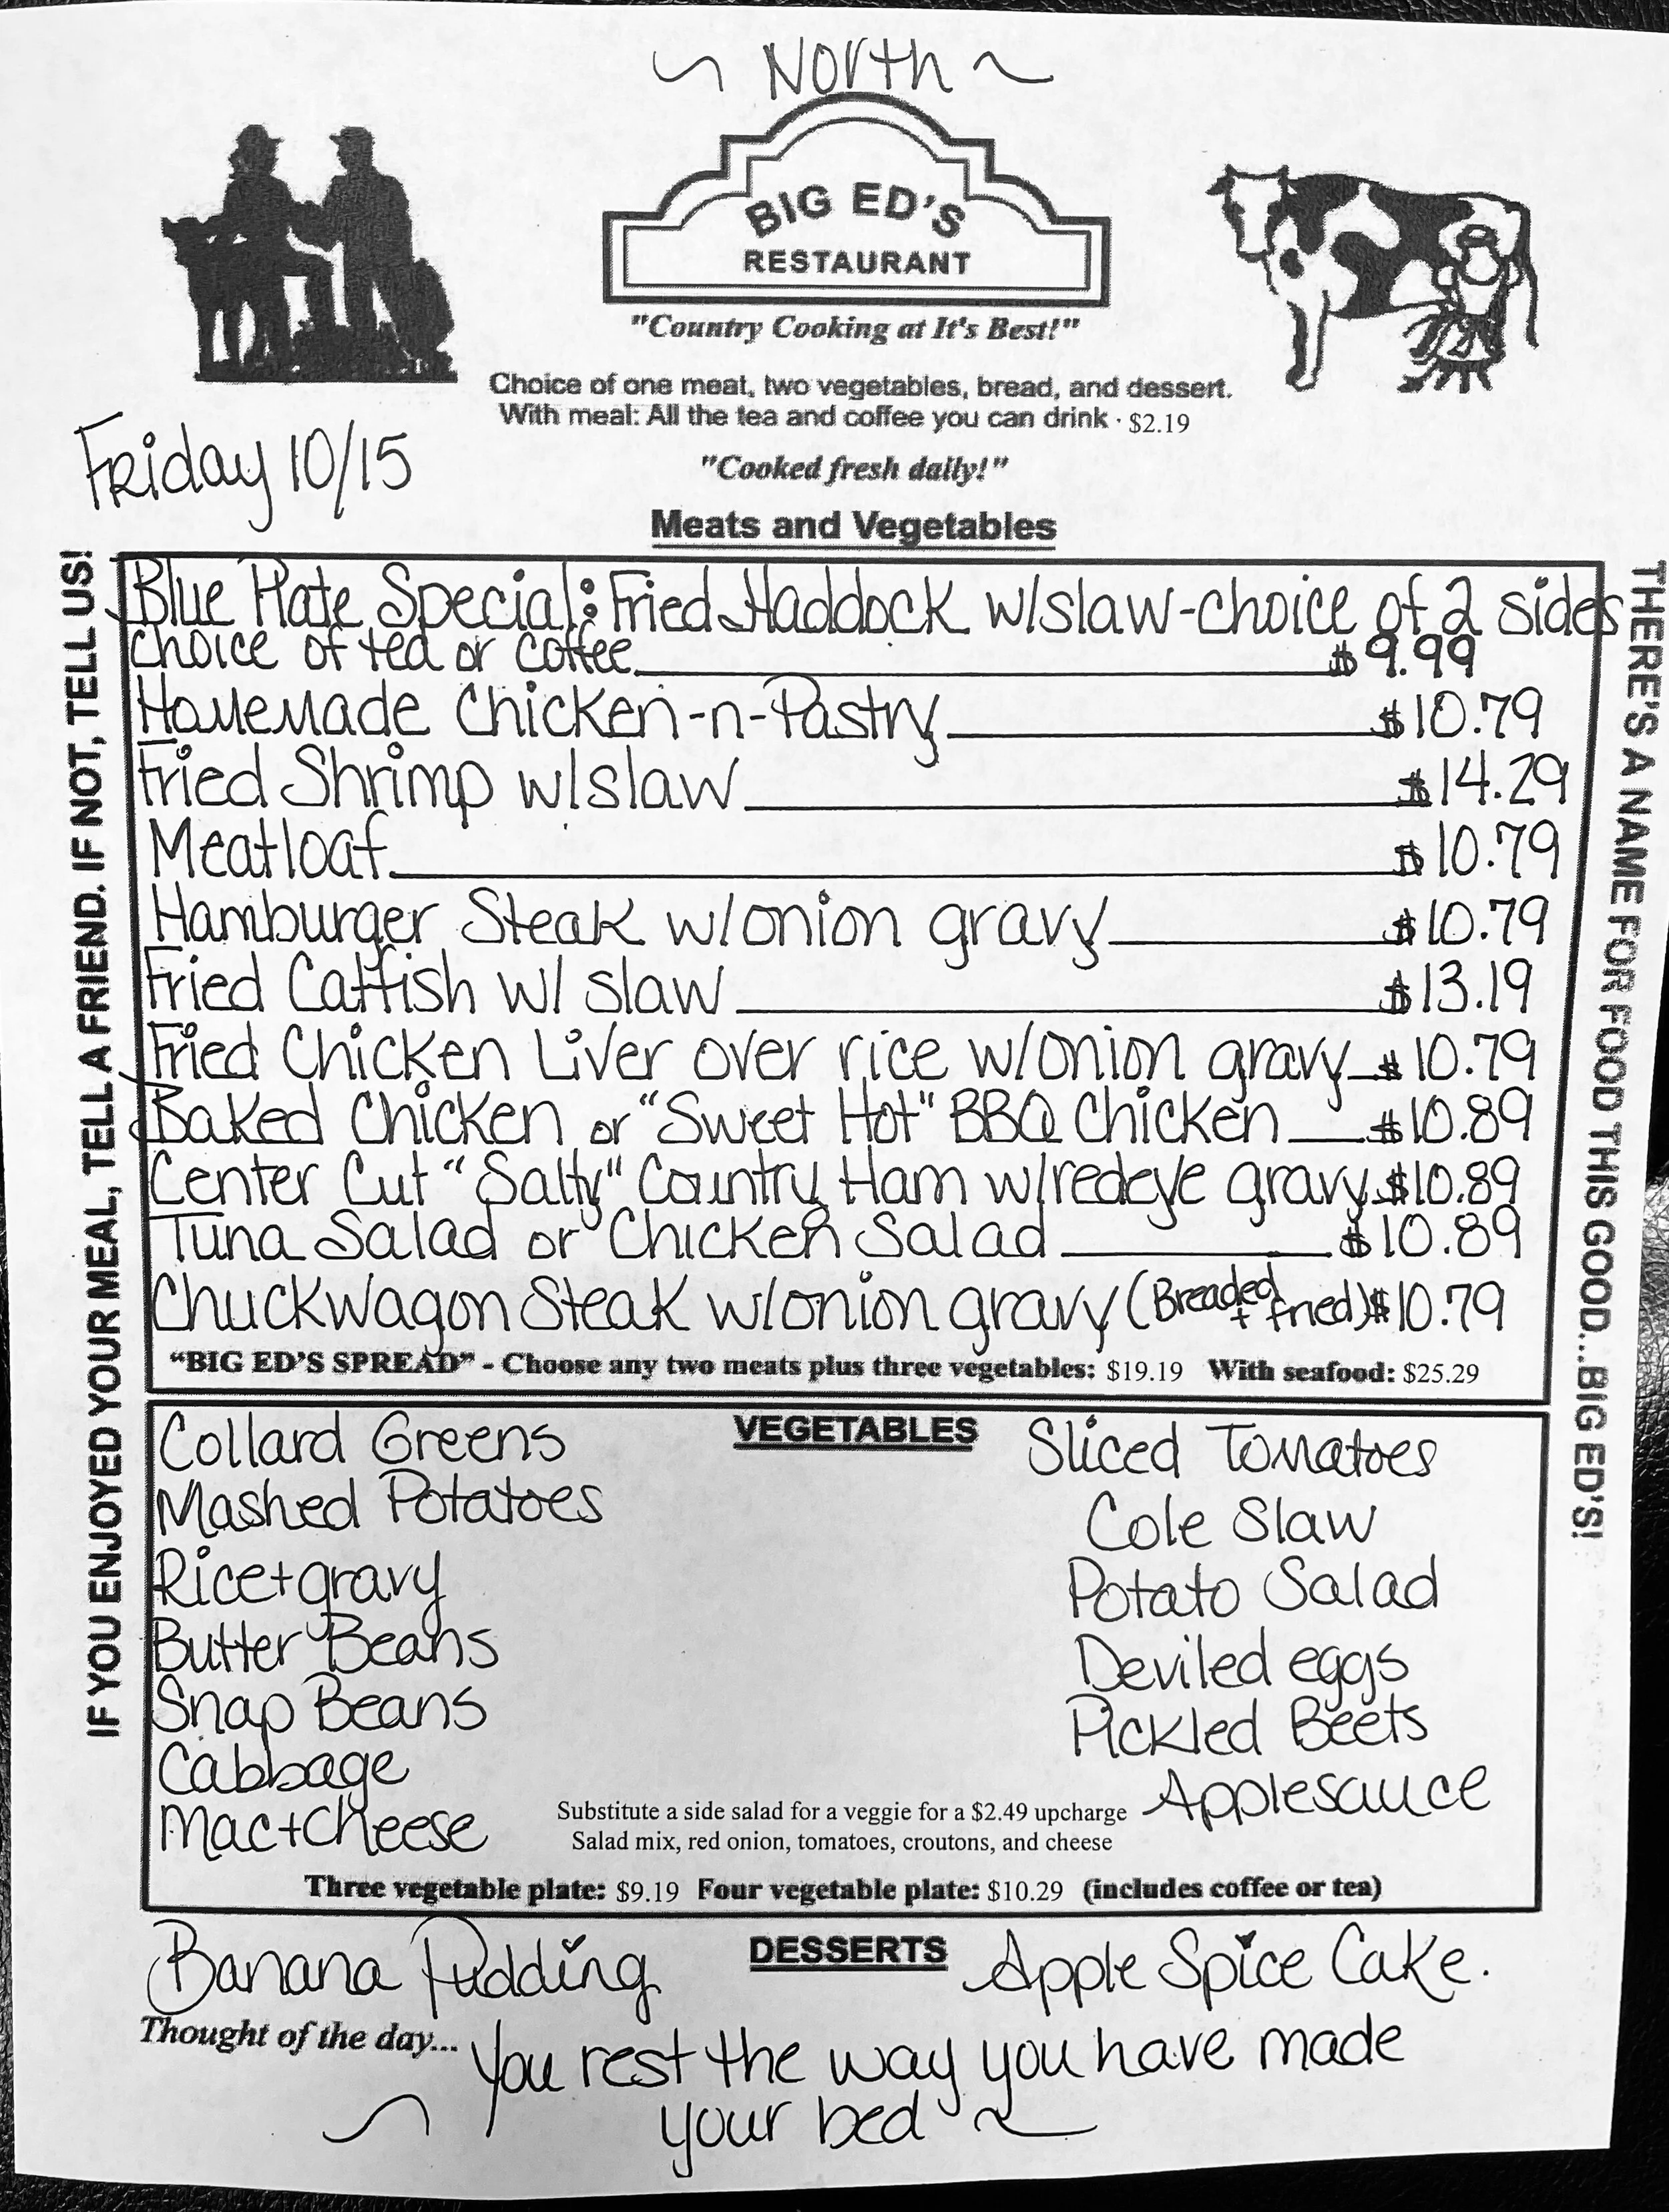 ~ North ~
BIG ED'S
RESTAURANT
"Country Cooking at It's Best!"
Choice of one meat, two vegetables, bread, and dessert.
With meal: All the tea and coffee you can drink · $2.19
Friday 10/15
"Cooked fresh daily!"
Meats and Vegetables
IF YOU ENJOYED YOUR MEAL, TELL A FRIEND. IF NOT, TELL US!
THERE'S A NAME FOR FOOD THIS GOOD...BIG ED'S!
Blue Plate Special: Fried Haddock w/slaw-choice of 2 sides
choice of tea or coffee $9.99
Homemade Chicken-n-Pastry $10.79
Fried Shrimp w/slaw $14.29
Meatloaf $10.79
Hamburger Steak w/onion gravy $10.79
Fried Catfish w/ slaw $13.19
Fried Chicken Liver over rice w/onion gravy $10.79
Baked Chicken or "Sweet Hot" BBQ Chicken $10.89
Center Cut "Salty" Country Ham w/redeye gravy $10.89
Tuna Salad or Chicken Salad $10.89
Chuckwagon Steak w/onion gravy (Breaded + fried) $10.79
"BIG ED'S SPREAD" - Choose any two meats plus three vegetables: $19.19 With seafood: $25.29
VEGETABLES
Collard Greens
Mashed Potatoes
Rice+gravy
Butter Beans
Snap Beans
Cabbage
Mac+Cheese
Sliced Tomatoes
Cole Slaw
Potato Salad
Deviled eggs
Pickled Beets
Applesauce
Substitute a side salad for a veggie for a $2.49 upcharge
Salad mix, red onion, tomatoes, croutons, and cheese
Three vegetable plate: $9.19 Four vegetable plate: $10.29 (includes coffee or tea)
DESSERTS
Banana Pudding
Apple Spice Cake.
Thought of the day...
You rest the way you have made
your bed